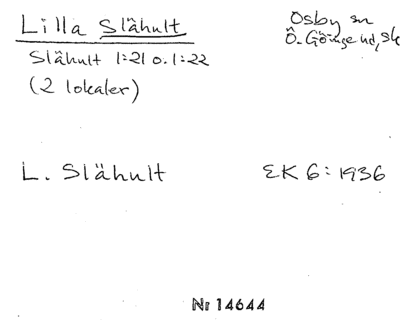 Lilla Slähult
Osby sn
Ö. Göinge hd, Sk
Slähult 1:21 o. 1:22
(2 lokaler)
L. Slähult
EK 6: 1936
Nr 14644